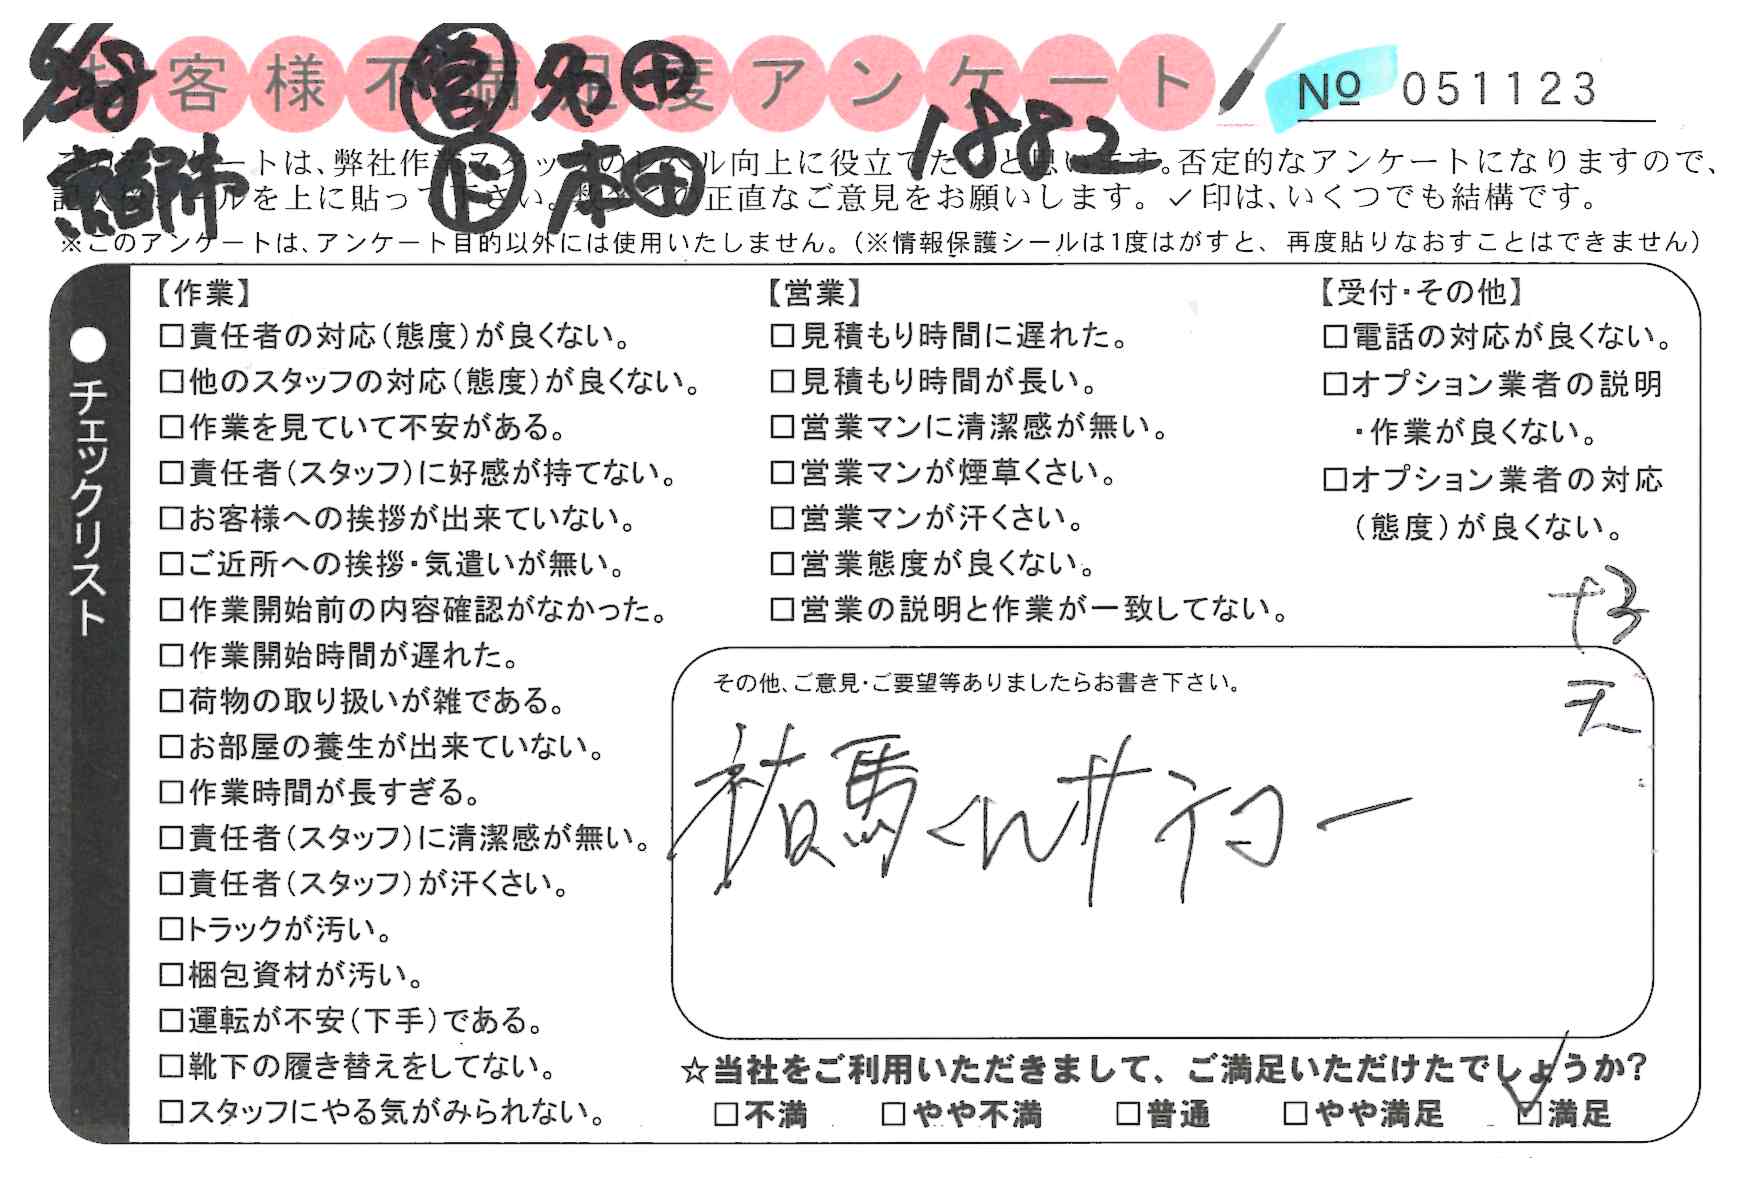 お客様不満足度アンケート
№ 051123
営 知田
1882
ト 本田
このアンケートは、弊社作業スタッフのレベル向上に役立てたいと思います。否定的なアンケートになりますので、
記入後シールを上に貼って下さい。数多くの正直なご意見をお願いします。✓印は、いくつでも結構です。
※このアンケートは、アンケート目的以外には使用いたしません。(※情報保護シールは1度はがすと、再度貼りなおすことはできません)
●チェックリスト
【作業】
□責任者の対応(態度)が良くない。
□他のスタッフの対応(態度)が良くない。
□作業を見ていて不安がある。
□責任者(スタッフ)に好感が持てない。
□お客様への挨拶が出来ていない。
□ご近所への挨拶・気遣いが無い。
□作業開始前の内容確認がなかった。
□作業開始時間が遅れた。
□荷物の取り扱いが雑である。
□お部屋の養生が出来ていない。
□作業時間が長すぎる。
□責任者(スタッフ)に清潔感が無い。
□責任者(スタッフ)が汗くさい。
□トラックが汚い。
□梱包資材が汚い。
□運転が不安(下手)である。
□靴下の履き替えをしてない。
□スタッフにやる気がみられない。
【営業】
□見積もり時間に遅れた。
□見積もり時間が長い。
□営業マンに清潔感が無い。
□営業マンが煙草くさい。
□営業マンが汗くさい。
□営業態度が良くない。
□営業の説明と作業が一致してない。
【受付・その他】
□電話の対応が良くない。
□オプション業者の説明
・作業が良くない。
□オプション業者の対応
(態度)が良くない。
その他、ご意見・ご要望等ありましたらお書き下さい。
祐馬くんサイコー
☆当社をご利用いただきまして、ご満足いただけたでしょうか?
□不満 □やや不満 □普通 □やや満足 ☑満足